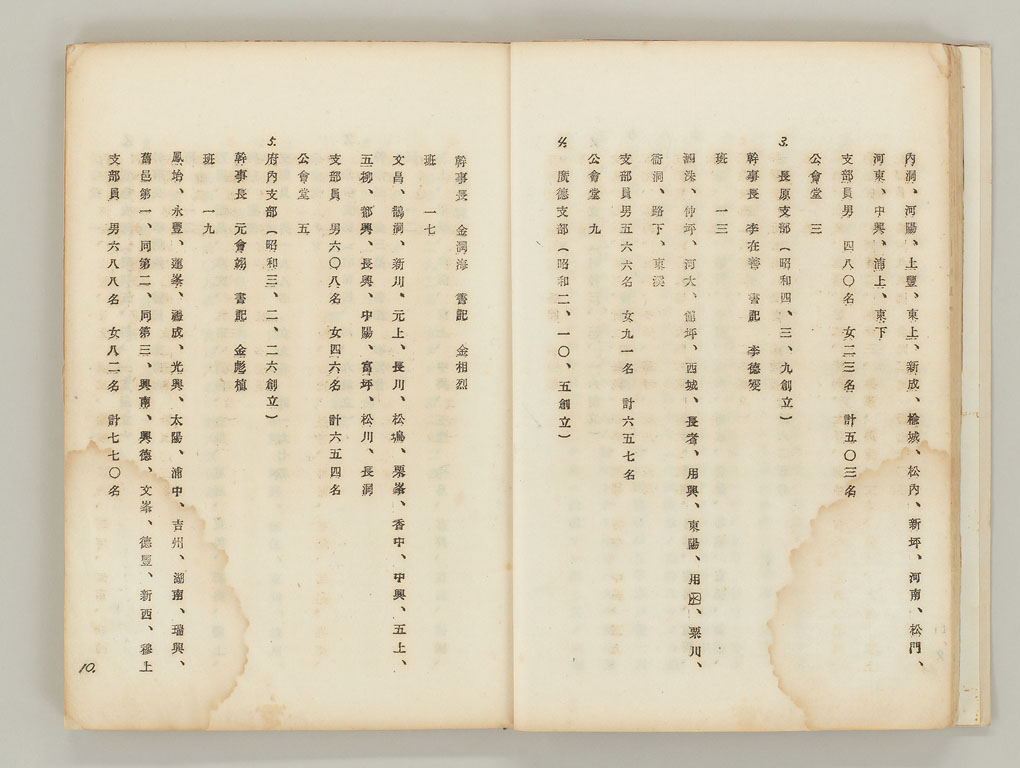 內洞、河陽、上豐、東上、新成、檜城、松內、新坪、河南、松門、
河東、中興、浦上、東下
支部員男　四八〇名　女二三名　計五〇三名
公會堂　三
3. 長原支部(昭和四、三、九創立)
幹事長　李在善　書記　李德燮
班　一三
泗洙、仲坪、河大、館坪、西城、長者、用興、東陽、用水、栗川、
衙洞、路下、東溪
支部員男五六六名　女九一名　計六五七名
公會堂　九
4. 廣德支部(昭和二、一〇、五創立)
幹事長　金洞海　書記　金相烈
班　一七
文昌、鶴洞、新川、元上、長川、松塢、栗峯、香中、中興、五上、
五柳、都興、長興、中陽、富坪、松川、長洞
支部員　男六〇八名　女四六名　計六五四名
公會堂　五
5. 府內支部(昭和三、二、二六創立)
幹事長　元會翊　書記　金彪植
班　一九
鳳始、永豐、蓮峯、德成、光興、太陽、浦中、吉州、湖南、瑞興、
舊邑第一、同第二、同第三、興南、興德、文峯、德豐、新西、穆上
支部員　男六八八名　女八二名　計七七〇名
10.